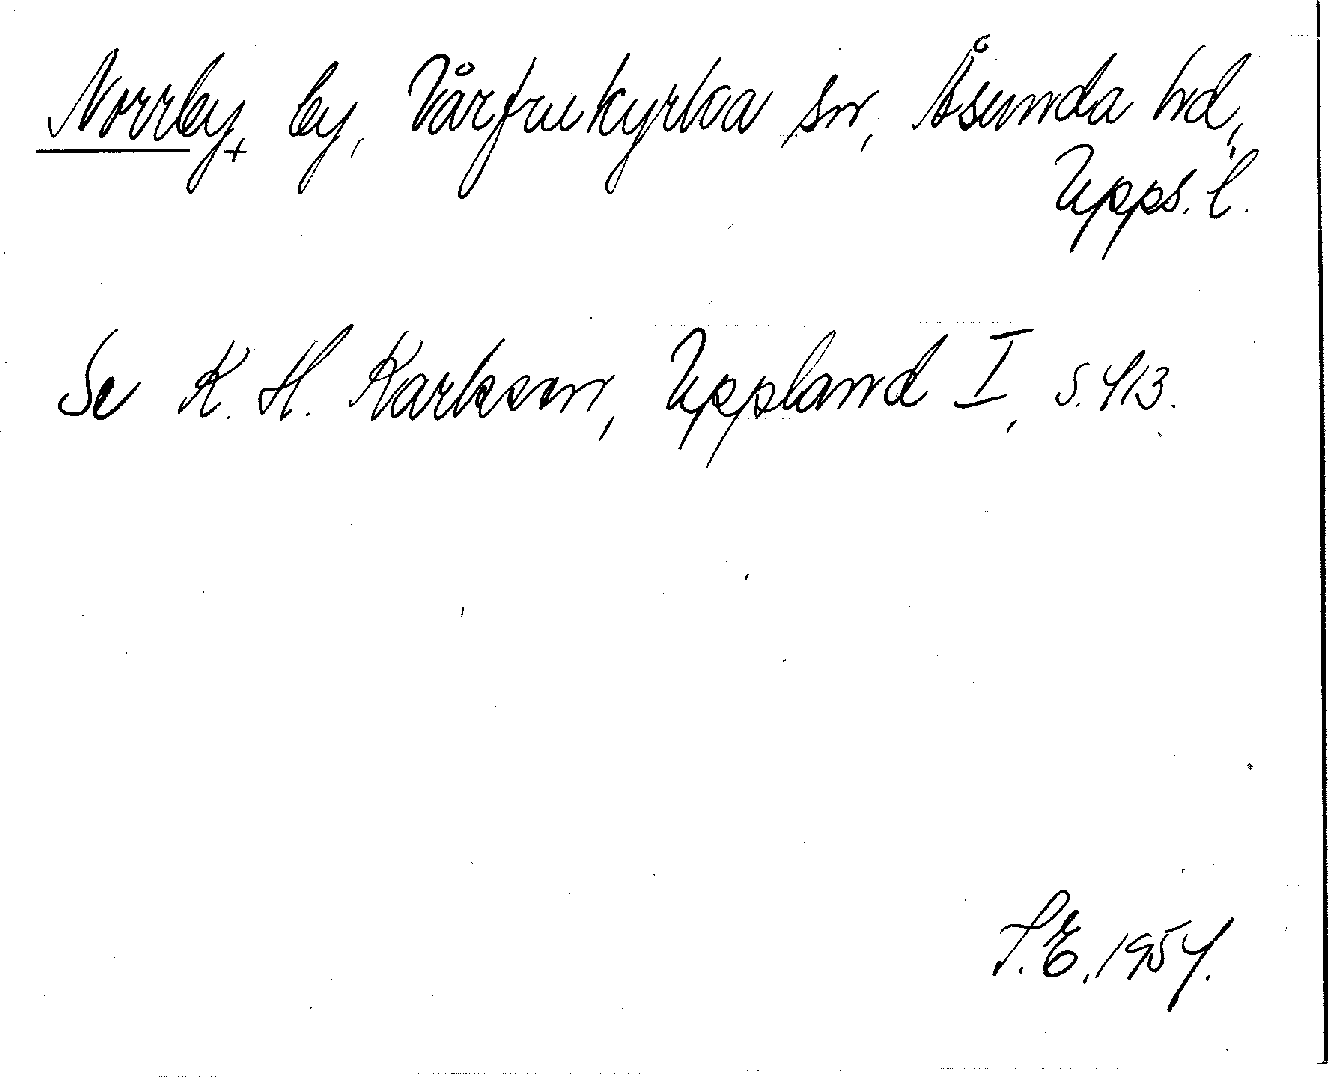 Norrby, by, Vårfrukyrka sn, Åsunda hd,
Upps. l.
Se K. H. Karlsson, Uppland I, s. 413.
S.E. 1954.